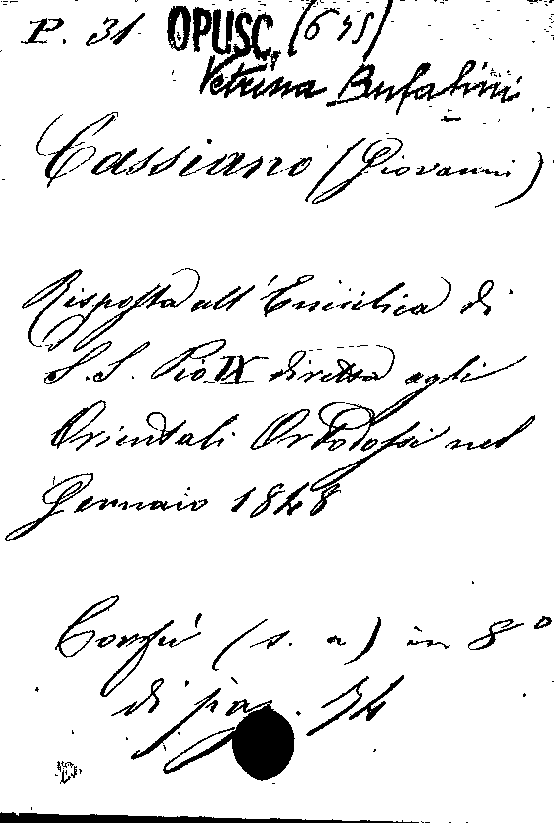 P. 31 OPUSC. (645)
Vetrina Bufalini
Cassiano (Giovanni)
Risposta all'Enciclica di
S. S. Pio IX diretta agli
Orientali Ortodossi nel
Gennaio 1848
Corfù (s. a) in 8°
di pag. 34